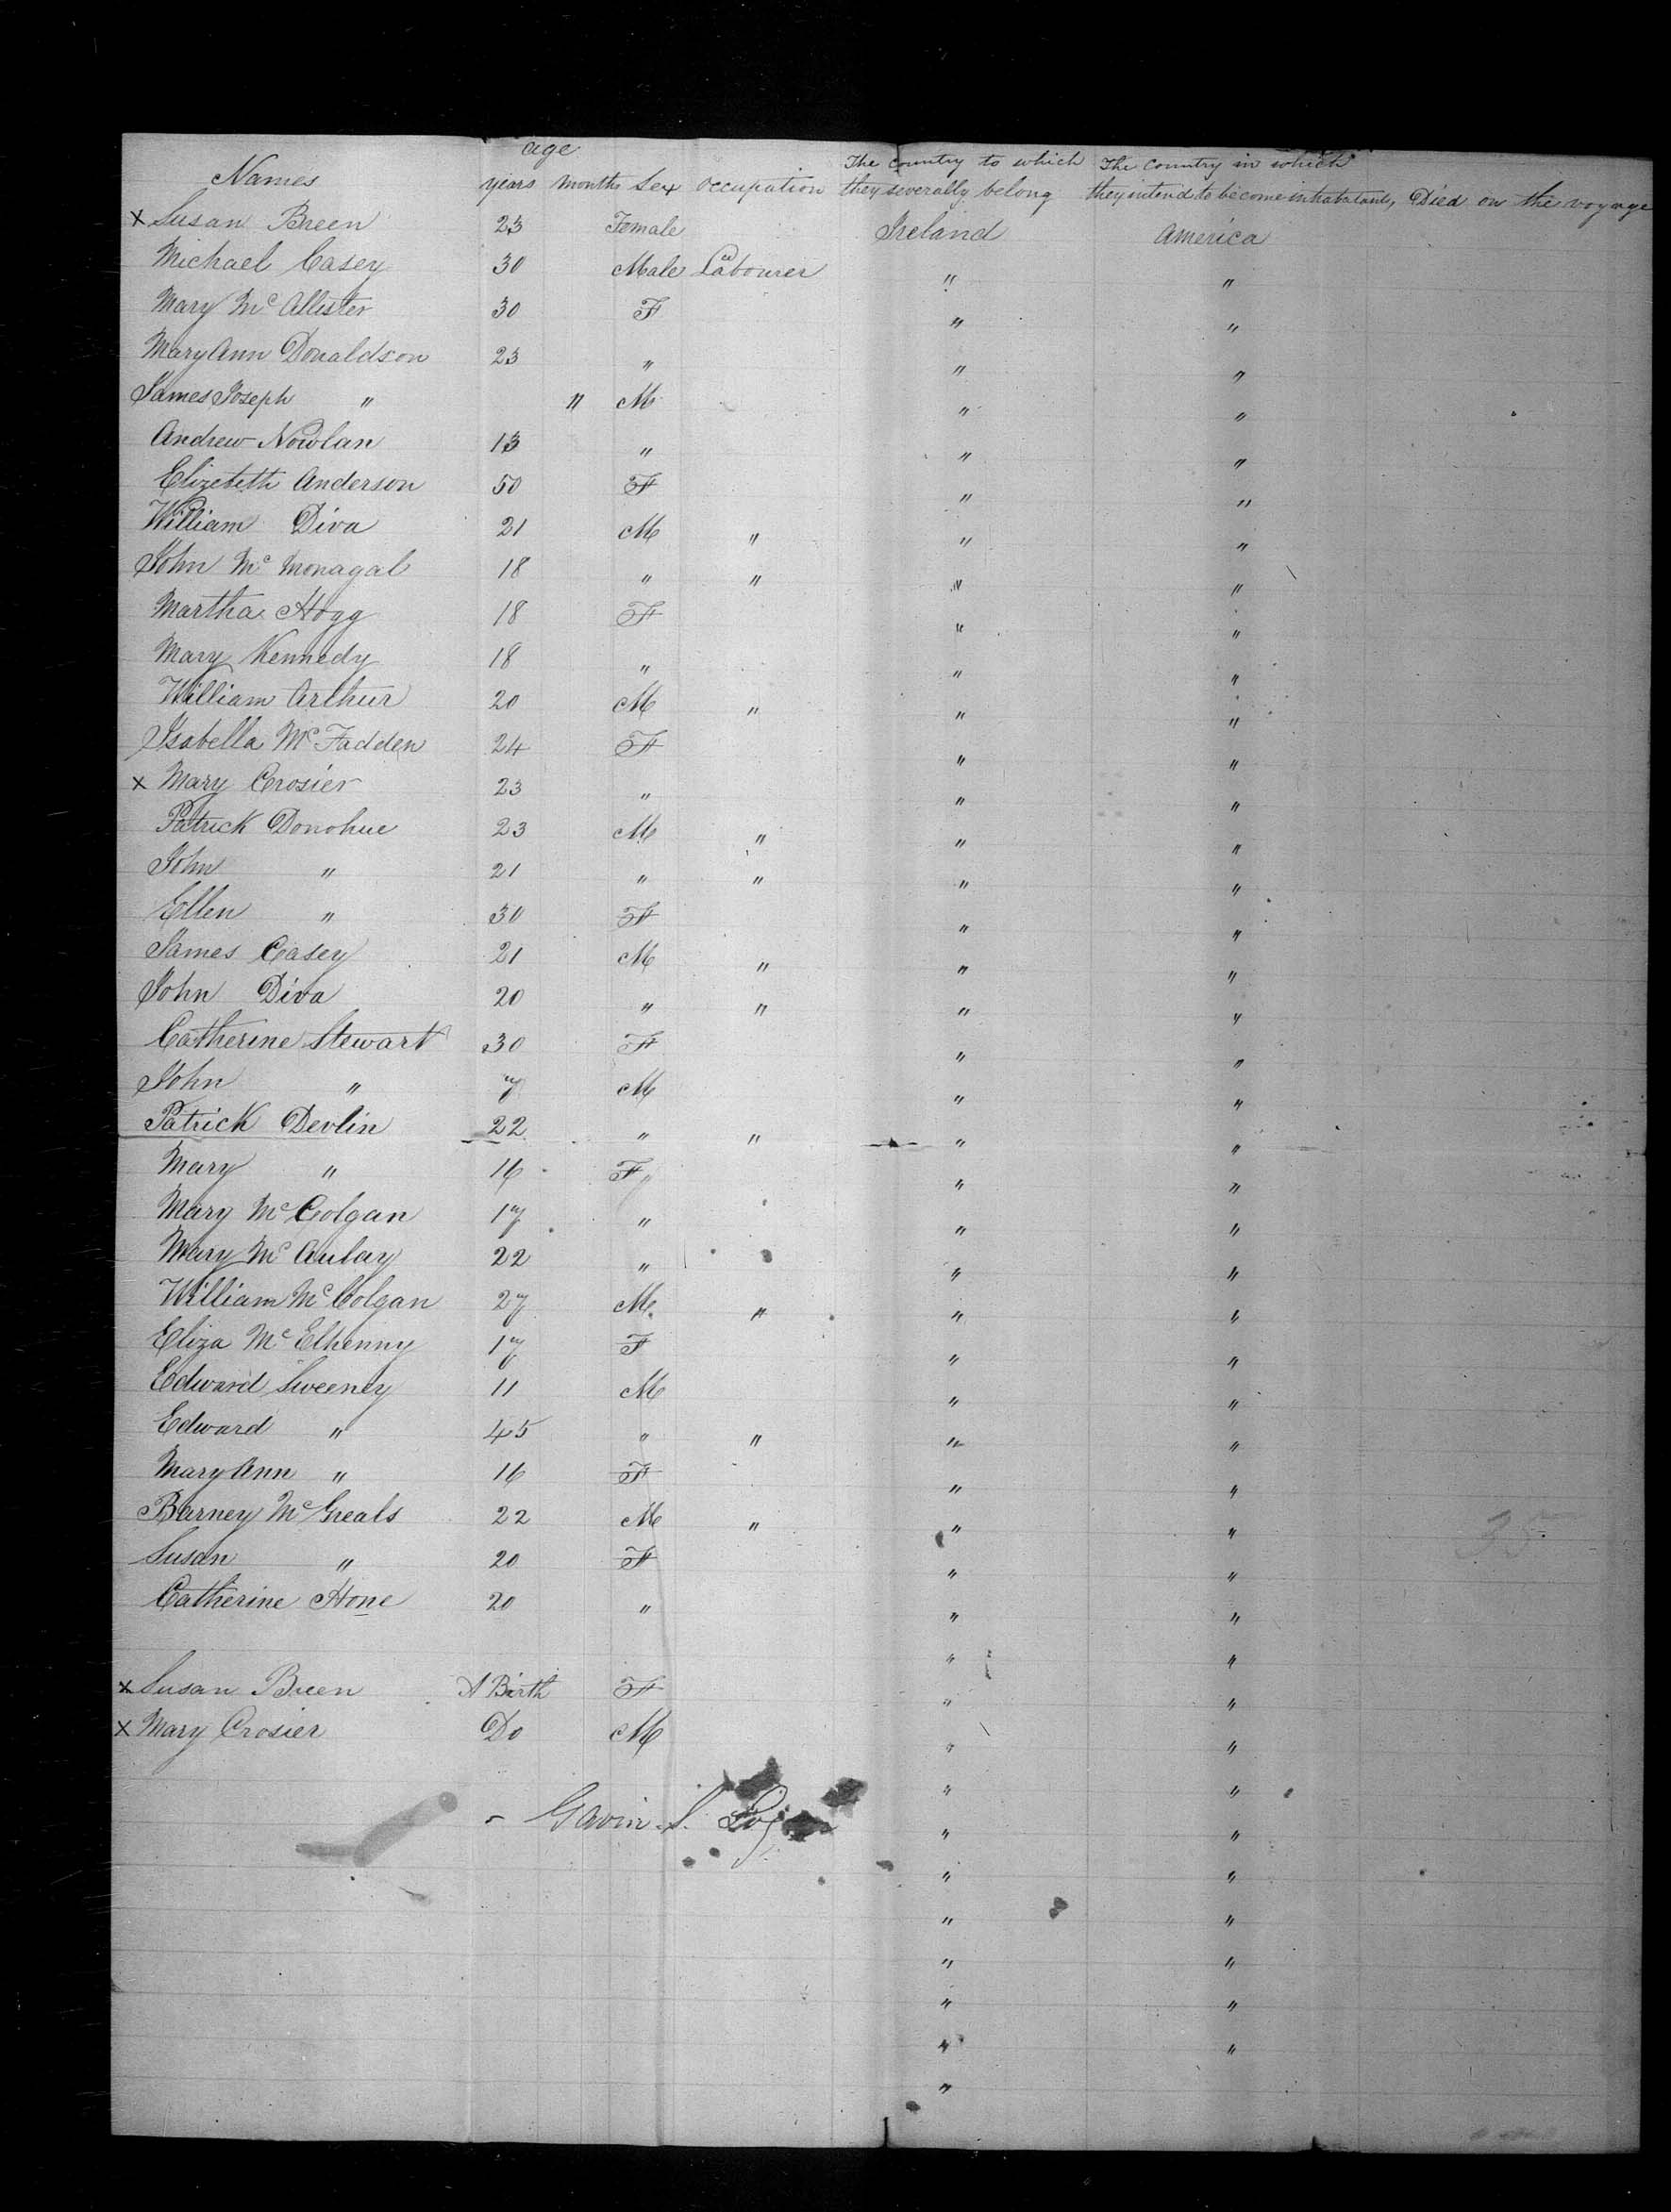 age
Names years months Sex occupation The country to which they severally belong The country in which they intend to become inhabitants, Died on the voyage
x Susan Breen 23 Female Ireland America
Michael Casey 30 Male Labourer " "
Mary Mc Allister 30 F " "
Mary Ann Donaldson 23 " " "
James Joseph " 11 M " "
Andrew Nowlan 13 " " "
Elizebeth Anderson 50 F " "
William Diva 21 M " " "
John Mc Monagal 18 " " " "
Martha Hogg 18 F " "
Mary Kennedy 18 " " "
William Arthur 20 M " " "
Isabella Mc Fadden 24 F " "
x Mary Crosier 23 " " "
Patrick Donohue 23 M " " "
John " 21 " " " "
Ellen " 30 F " "
James Casey 21 M " " "
John Diva 20 " " " "
Catherine Stewart 30 F " "
John " 7 M " "
Patrick Devlin 22 " " " "
Mary " 16 F " "
Mary Mc Colgan 17 " " "
Mary Mc Aulay 22 " " "
William Mc Colgan 27 M " " "
Eliza Mc Elhenny 17 F " "
Edward Sweeney 11 M " "
Edward " 45 " " " "
Mary Ann " 16 F " "
Barney Mc Greals 22 M " " "
Susan " 20 F " "
Catherine Hone 20 " " "
" "
x Susan Breen A Birth F " "
x Mary Crosier Do M " "
" "
Gavin S. " "
" "
" "
" "
" "
" "
"
35